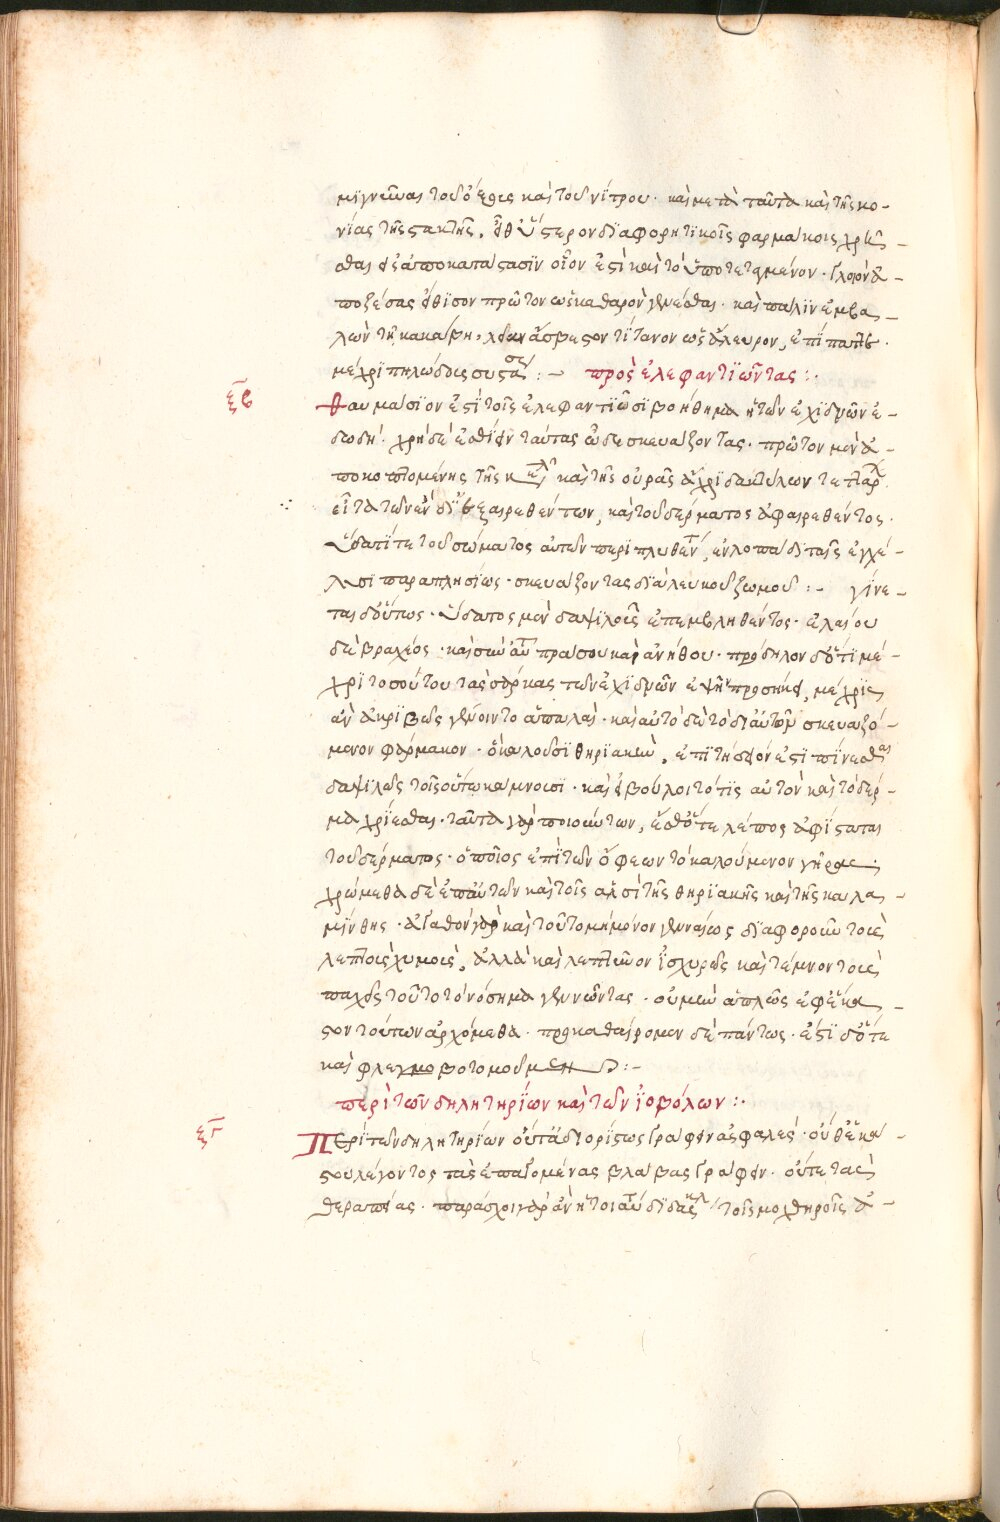 μϊγνεῖναι τοῦ ὄξους καὶ τοῦ νίτρου· καὶ μετὰ ταῦτα καὶ τῆς κο-
νίας τῆς στακτῆς. εἶθ' ὕστερον διαφορητικοῖς φαρμάκοις χρῆ-
σθαι εἰς ἀποκατάστασιν οἷον ἐστὶ καὶ τὸ ὑποτεταγμένον·
ποζέσας πρῶτον ὡς καθαρὸν γενέσθαι· καὶ πάλιν ἐμβα-
λὼν τῇ κακάβῃ, ἄσβεστον τίτανον ὡς ἄλευρον, ἐπίπαττε·
μέχρι πηλώδους συστάσε :- πρὸς ἐλεφαντιῶντας :·
ξβ θαυμάσιον ἐστὶ τοῖς ἐλεφαντιῶσι βοήθημα ἡ τῶν ἐχιδνῶν ἐ-
δωδή· χρὴ δὲ ἐσθίειν ταύτας ὧδε σκευάζοντας· πρῶτον μὲν ἀ-
ποκοπτομένης τῆς κεφαλ καὶ τῆς οὐρᾶς ἄχρι δακτύλων τεττάρ
εἶτα τῶν ἐντὸς ἐξαιρεθέντων, καὶ τοῦ δέρματος ἀφαιρεθέντος·
ὕδατί τε τοῦ σώματος αὐτῶν περιπλυθέντ, ἐν λοπάδι ταῖς ἐγχέ-
λυσι παραπλησίως· σκευάζοντας διὰ λευκοῦ ζωμοῦ :- γίνε-
ται δ' οὕτως· ὕδατος μὲν δαψιλοῦς ἐπεμβληθέντος· ἐλαίου
δὲ βραχέος· καὶ σὺν αὐτ πράσου καὶ ἀνήθου· πρόδηλον δ' ὅτι μέ-
χρι τοσούτου τὰς σάρκας τῶν ἐχιδνῶν ἕψειν προσήκει, μέχρις
ἂν ἀκριβῶς γένοιντο ἁπαλαὶ· καὶ αὐτὸ δὲ τὸ δι' αὐτῶν σκευαζό-
μενον φάρμακον· ὃ καλοῦσι θηριακὴν, ἐπιτήδειόν ἐστι πίνεσθαι
δαψιλῶς τοῖς οὕτω κάμνουσι· καὶ εἰ βούλοιτό τις αὐτὸν καὶ τὸ δέρ-
μα χρίεσθαι· ταῦτα γὰρ ποιούντων, ἔσθ' ὅτε λέπος ἀφίσταται
τοῦ δέρματος· ὁποῖος ἐπὶ τῶν ὄφεων τὸ καλούμενον γῆρας·
χρώμεθα δὲ ἐπ' αὐτῶν καὶ τοῖς ἁλσὶ τῆς θηριακῆς καὶ τῆς καλα-
μίνθης· ἀγαθὸν γὰρ καὶ τοῦτο μὴ μόνον γενναίως διαφοροῦν τοὺς
λεπτοὺς χυμοὺς, ἀλλὰ καὶ λεπτῦνον ἰσχυρῶς καὶ τέμνον τοὺς
παχεῖς τοῦτο τὸ νόσημα γεννῶντας· οὐ μὴν ἁπλῶς ἐφ' ἕκα-
στον τούτων ἀρχόμεθα· προκαθαίρομεν δὲ πάντως· ἔστι δ' ὅτε
καὶ φλεγμοβοτομοῦμεν :-
περὶ τῶν δηλητηρίων καὶ τῶν ἰοβόλων :·
ξγ Περὶ τῶν δηλητηρίων οὔτε ἀδιορίστως γράφειν ἀσφαλές· οὔθ' ἕκα-
στου λέγοντος τὰς ἐπαγομένας βλάβας γράφειν· οὔτε τὰς
θεραπείας· παράσχοι γὰρ ἂν ἡ τοιαύτ διδασκαλ τοῖς μοχθηροῖς ἀ-